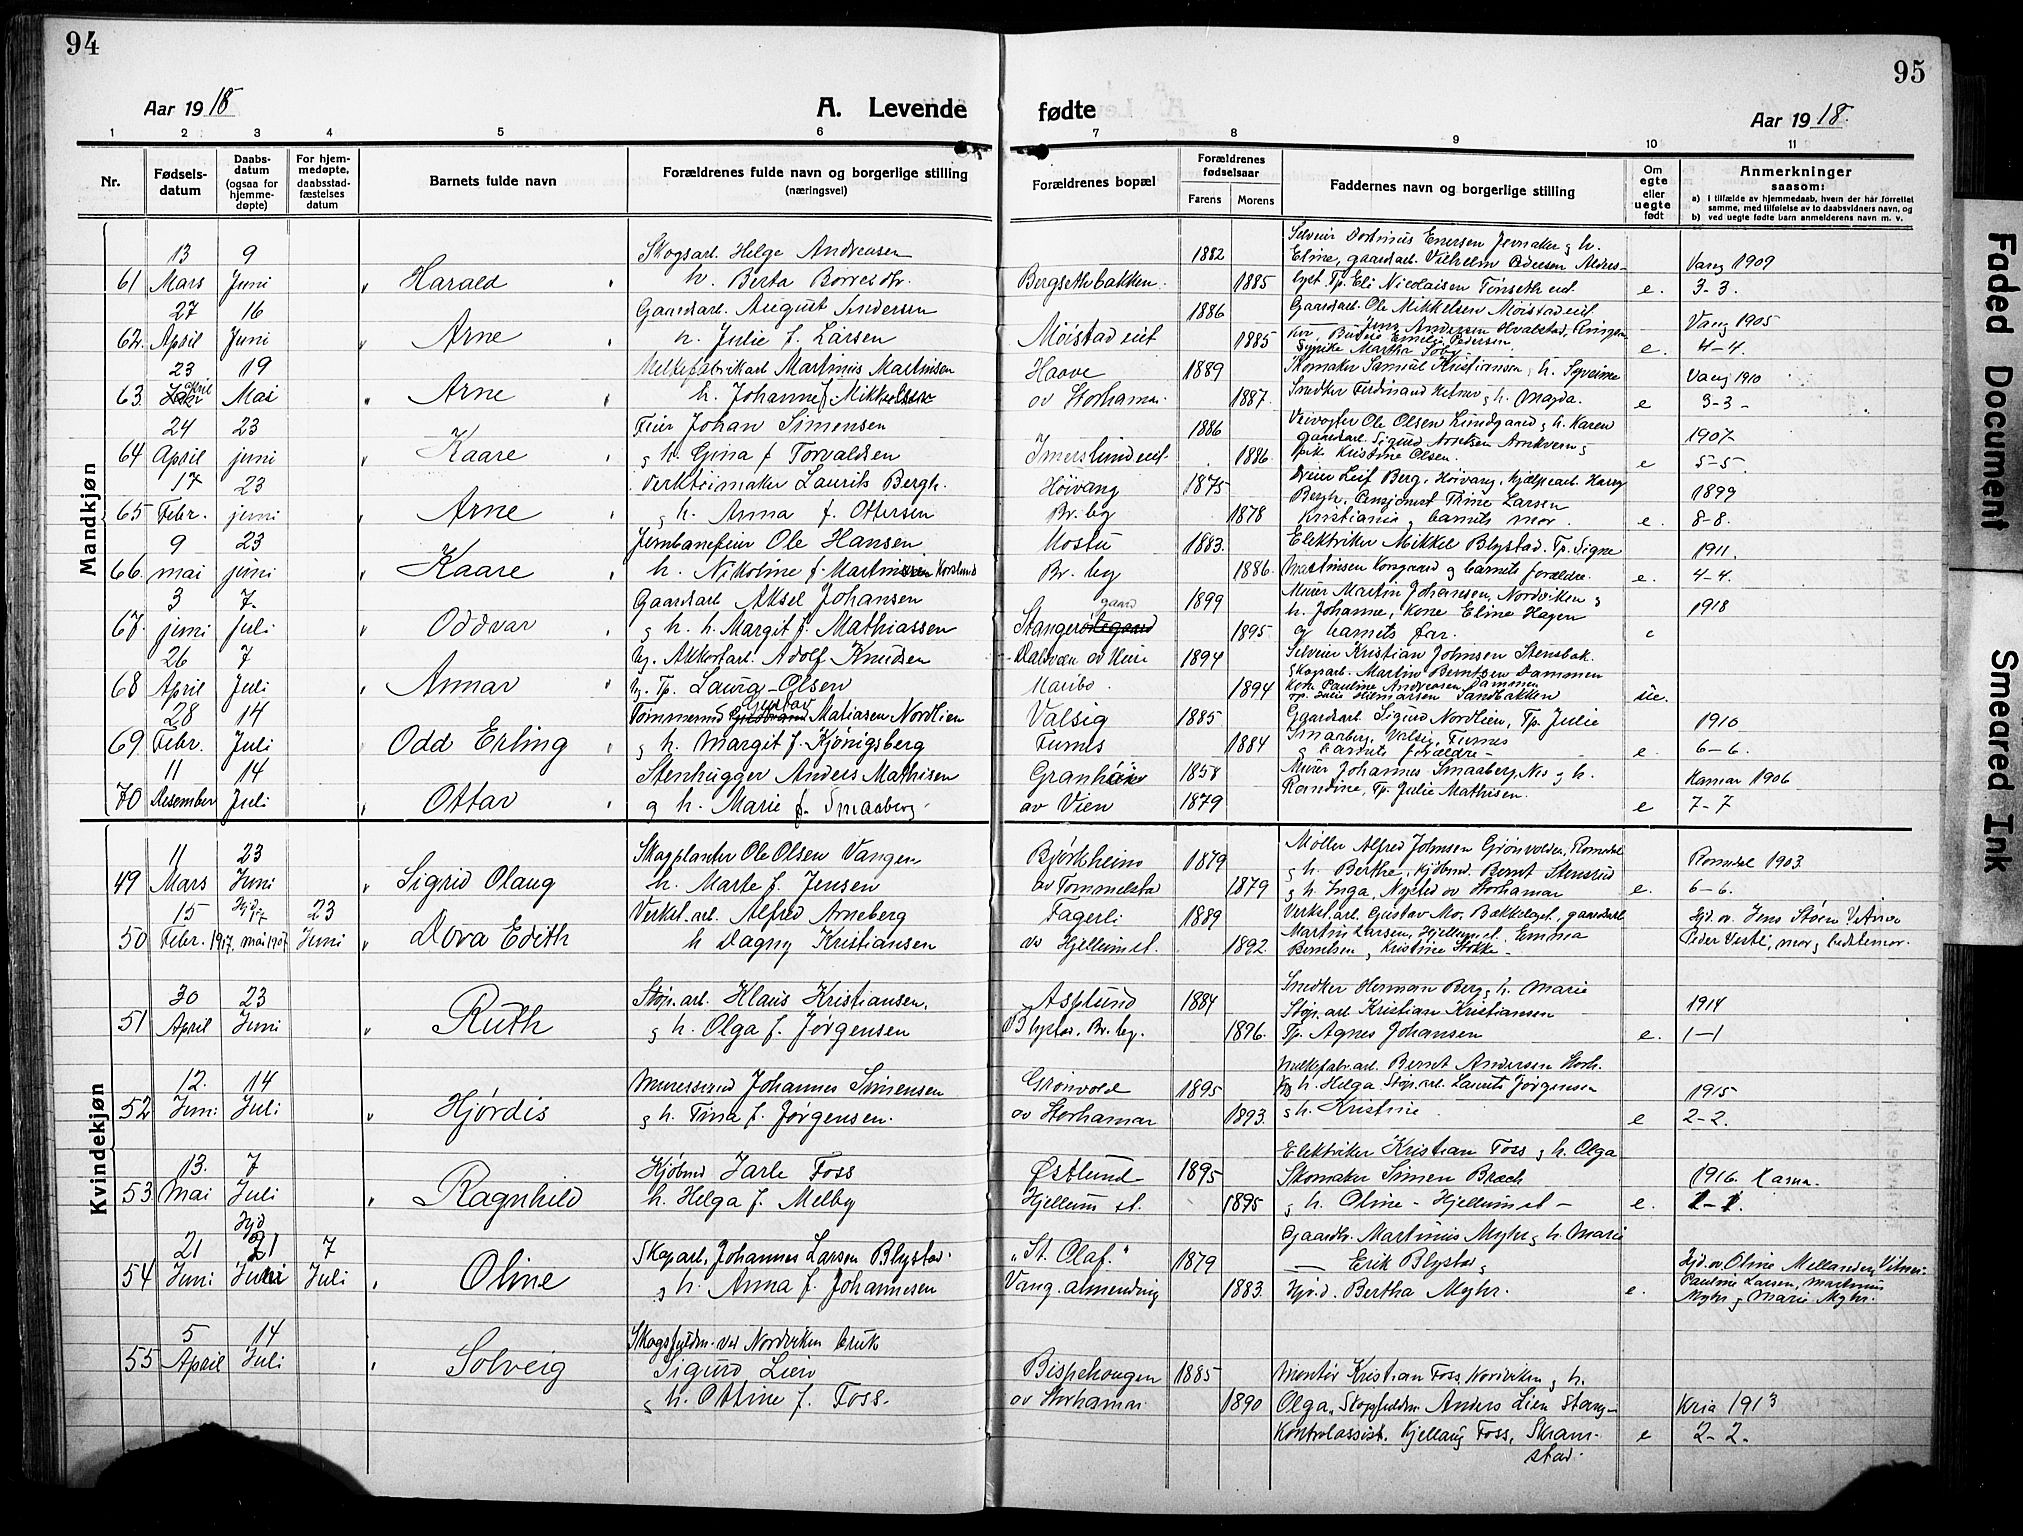 94
95
Aar 1918
A. Levende fødte
Aar 1918.
1 2 3 4 5 6 7 8 9 10 11
Nr.
Fødselsdatum
Daabsdatum (ogsaa for hjemmedøpte)
For hjemmedøpte, daabsstadfæstelses datum
Barnets fulde navn
Forældrenes fulde navn og borgerlige stilling (næringsvei)
Forældrenes bopæl
Forældrenes fødselsaar
Farens Morens
Faddernes navn og borgerlige stilling
Om egte eller uegte født
Anmerkninger
saasom:
a) I tilfælde av hjemmedaab, hvem der har forrettet samme, med tilføielse av to daabsvidners navn, og
b) ved uegte fødte barn anmelderens navn m. v.
Mandkjøn
13 9 Skogsarb. Helge Andreasen 1882
61 Mars Juni " Harald h. Berta Borresdtr. Bergsethbakken. 1885 e. Vang 1909 3-3.
27 16 Gaardarb. August Andersen 1886 Gaardarb. Ole Mikkelsen Møistadeiet
62. April Juni " Arne h. Julie f. Larsen Møistad eiet 1885 e. Vang 1905 4-4.
23 19 Melkefabrikarb Martinus Martinsen Haave 1889 Skomaker Samuel Kristiansen, h.
63. April Mai " Arne h. Johanne f. Mikkelsen ov Storhamar 1887. h. Magda. e Vang 1910 3-3-
24 23 Feier Johan Simensen 1886 Veivogter Ole Olsen Lundgaard g h. Karen
64 April juni " Kaare g h. Gina f Torvaldsen Imerslundeiet. 1886 Kristine Olsen. e 1907- 5-5.
17 23 Verktøimaker Laurits Bergh. Høivang 1875 Leif Berg, Høivang, Hjælpearb. Harry
65 Febr. juni " Arne g h. Anna f. Ottersen Br. by 1878 Bergh, Thine Larsen Kristiania g barnets mor. e. 1899 8-8.
9 23 Jernbanefeier Ole Hansen 1883. Elektriker Mikkel Blystad. Tp. Signe
66. mai juni " Kaare h. Nikoline f. Martinsen Korslund Br. by 1886. Martinsen g barnets forældre. e. 1911. 4-4.
3 7- Gaardsarb Aksel Johansen gaard 1899 Murer Martin Johansen, Nordviken g
67. juni juli " Oddvar g h. h. Margit f. Mathiassen 1895 h. Johanne, Kone Eline Hagen og barnets far. e 1918
26 7 Akkortarb. Adolf Knudsen 1894 Selveier Kristian Johnsen Stensbak.
68 April Juli " Annar Tp. Laura Olsen Maribo. 1894 Skogarb. Martin Berntsen Dammen Kone Pauline Andreasen Dammen Sandbakken ue.
28 14 Tømmermd Gustav Matiasen Nordlien Valsig 1885 Gaardarb Sigurd Nordlien, Tp. Julie
69. Febr. Juli Odd Erling g h. Margit f. Kjønigsberg Furnes 1884 Smaaberg, Valsig, Furnes g barnets forældre- e. 1910 6-6.
11 14 Stenhugger Anders Mathisen 1858 Murer Johannes Smaaberg, Nes g h.
70 Desember Juli " Ottar g h. Marie f. Smaaberg. av Vien 1879 Randine, Tp. Julie Mathisen. e Hamar 1906 7-7
Kvindekjøn
11 23 Skogplanter Ole Olsen Vangen Bjørkheim 1879 Møller Alfred Johnsen Grønvolden, Romedal
49 Mars Juni " Sigrid Olaug h. Marte f. Jensen av Tommelstad 1879 g h. Berthe, Kjøbmd. Bernt Stensrud g h. Inga, Nysted ov Storhamar e. Romedal 1903. 6-6.
15 Hjd. 17 23 Verkst. arb. Alfred Arneberg Fagerli 1889 Verkst. arb. Gustav Mo, Bækkelaget, gaardarb
50 Febr. 1917. mai 1917 Juni " Dora Edith h Dagny Kristiansen ov Hjellum st. 1892. Martin Larsen, Hjellum st. Emma Berntsen g Kristine Stokke - Hjd. av Jens Støen Vitner Peder Vestli, mor g bedstemor.
30 23 Støp. arb. Klaus Kristiansen, Asplund 1884 Snedker Herman Berg g h. Marie
51 April Juni " Ruth g h. Olga f. Jørgensen Blystad. Br. by. 1896. Støp. arb Kristian Kristiansen Tp. Agnes Johansen e. 1914 1-1
12. 14 Murersvend Johannes Simensen Grønvold 1895 Melkefabr.arb. Bernt Andersen Storh.
52 Juni Juli " Hjørdis g h. Tina f. Jørgensen. ov Storhamar 1893. g h. Helga Støp. arb. Laurits Jørgensen g h. Kristine e 1915 2-2.
13. 7 Kjøbmd Jarle Foss Østlund 1895 Elektriker Kristian Foss g h. Olga
53 Mai Juli " Ragnhild h. Helga f. Melby Hjellum st. 1895 Skomaker Simen Bræch g h. Oline - Hjellum st - e. 1916
21 Hjd 21 7 Skogarb. Johannes Larsen Blystad. "St. Olaf." 1879 Gaardbr. Martinus Myhr g h. Marie
54 Juni Juni Juli " Oline g h. Anna f. Johannesen Vang. almending 1883. — Erik Blystad g Bertha Myhr. e. Hjd. av Oline Mellanden, Vitner: Pauline Larsen, Martinus Myhr g Marie Myhr.
5 14 Skogsfuldm. ved Nordviken bruk
55 April Juli " Solveig Sigurd Lien Bispehougen 1885 Montør Kristian Foss, Nordviken g h.
g h. Ottine f. Foss. ov Storhamar. 1890 Olga, Skogsfuldm. Anders Lien Stang- Kria 1913
Kontrolassist. Kjellaug Foss, Skramstad. e 2-2.
Faded Document
Smeared Ink